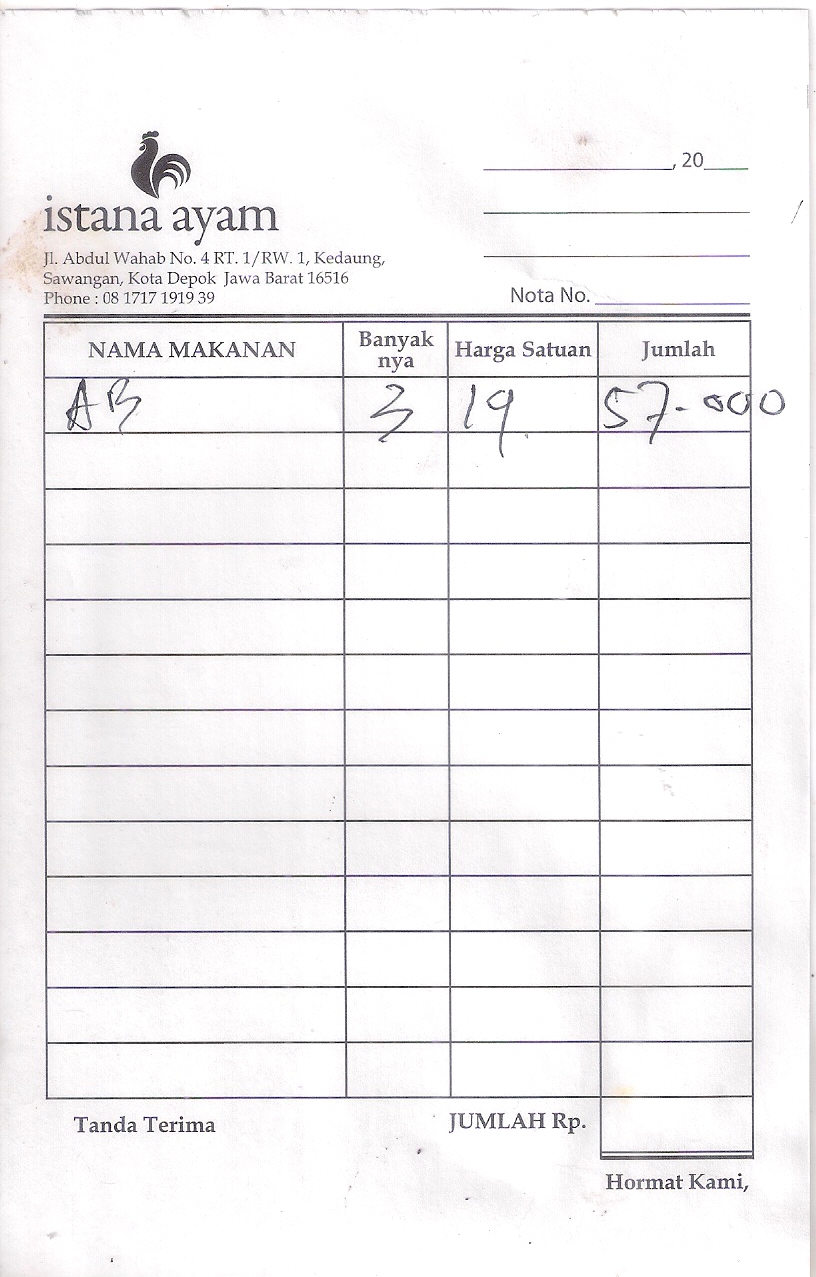 , 20
istana ayam
Jl. Abdul Wahab No. 4 RT. 1/RW. 1, Kedaung,
Sawangan, Kota Depok Jawa Barat 16516
Phone : 08 1717 1919 39
Nota No.
NAMA MAKANAN Banyak nya Harga Satuan Jumlah
AB 3 19 57.000
Tanda Terima JUMLAH Rp.
Hormat Kami,